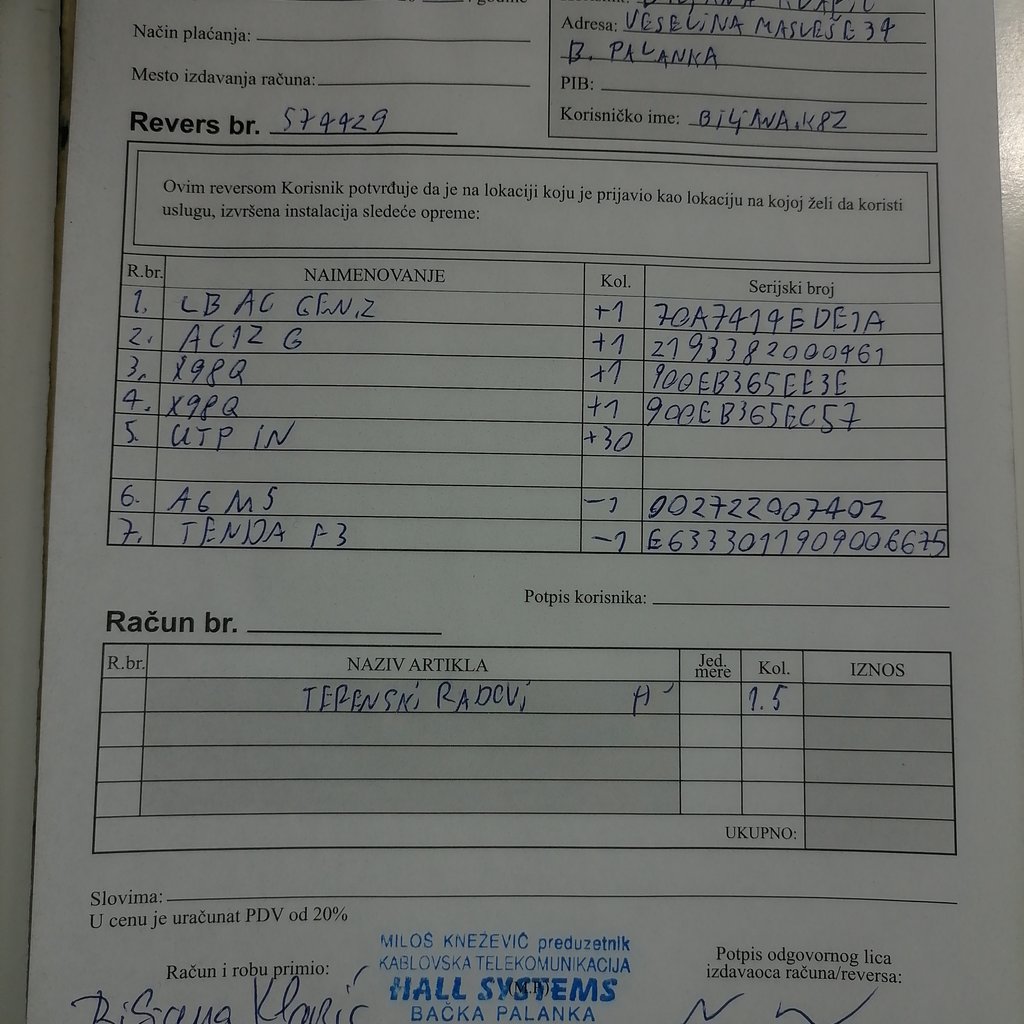 Način plaćanja:
Adresa: VESELINA MASLEŠE 34
B. PALANKA
Mesto izdavanja računa:
PIB:
Korisničko ime: BILJANA.K82
Revers br. 574429
Ovim reversom Korisnik potvrđuje da je na lokaciji koju je prijavio kao lokaciju na kojoj želi da koristi
uslugu, izvršena instalacija sledeće opreme:
R.br. NAIMENOVANJE Kol. Serijski broj
1. LB AC GEN.2 +1 70A7414EDE1A
2. AC12 G +1 2193382000961
3. X98Q +1 900EB365EE3E
4. X98Q +1 900EB365EC57
5. UTP IN +30
6. AG M5 -1 002722907402
7. TENDA F3 -1 E6333011909006675
Potpis korisnika:
Račun br.
R.br. NAZIV ARTIKLA Jed. mere Kol. IZNOS
TERENSKI RADOVI H 1.5
UKUPNO:
Slovima:
U cenu je uračunat PDV od 20%
MILOŠ KNEŽEVIĆ preduzetnik
KABLOVSKA TELEKOMUNIKACIJA
HALL SYSTEMS
BAČKA PALANKA
Račun i robu primio:
(M.P.)
Potpis odgovornog lica
izdavaoca računa/reversa: